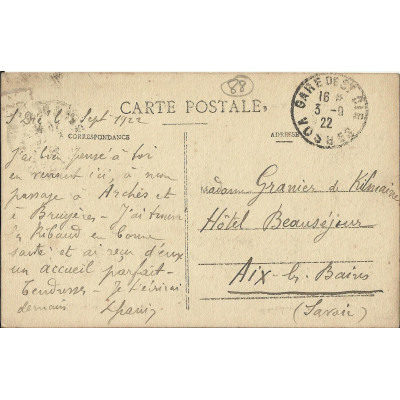 88
CARTE POSTALE
St Dié le 3 Sept 1922
CORRESPONDANCE
ADRESSE
GARE DE ST DIÉ
16
3 - 9
22
VOSGES
J'ai bien pensé à toi
en revenant ici, à mon
passage à Arches et
à Bruyères - J'ai trouvé
Ribaud en bonne
santé et ai reçu d'eux
un accueil parfait -
Tendresses - Je t'écrirai
demain
Madame Granier de Kilmaine
Hôtel Beauséjour
Aix-les-Bains
(Savoie)